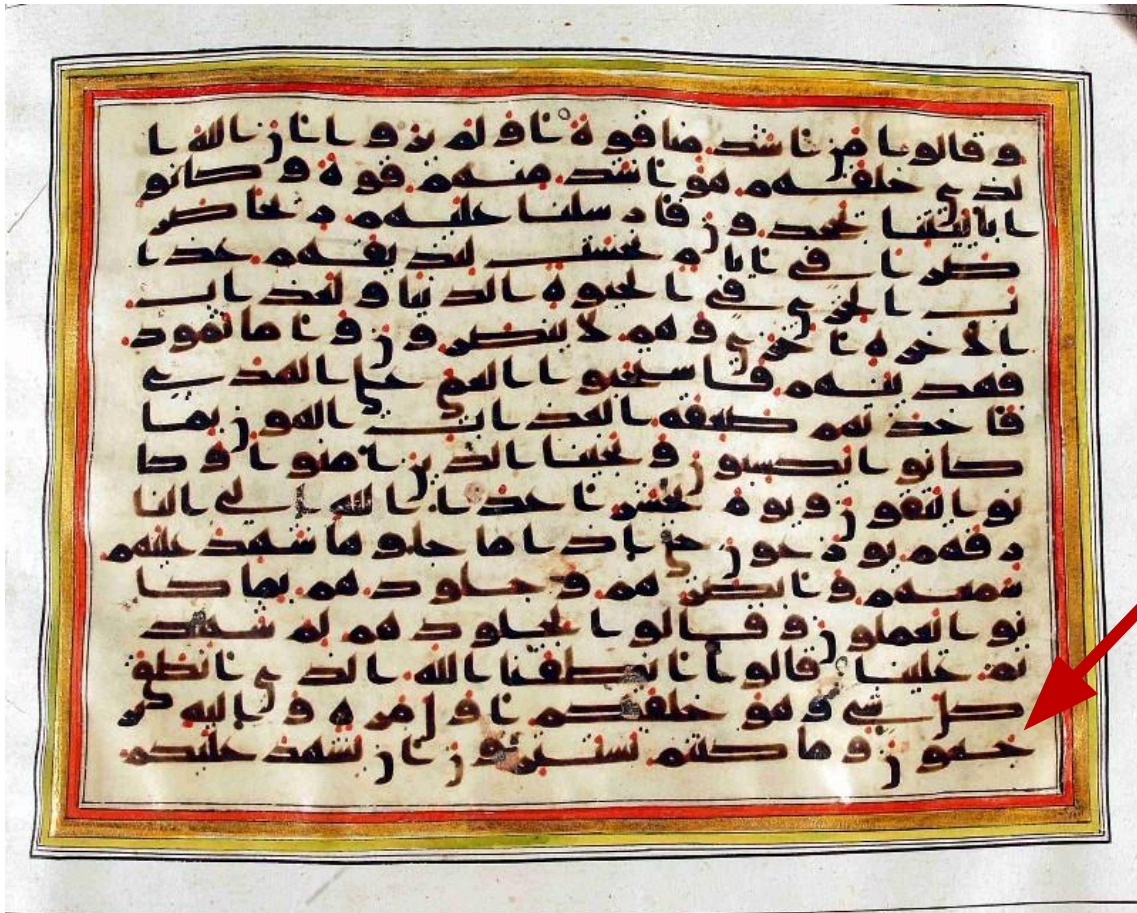 و قالوا من اشد منا قوة اولم يروا ان الله ا
لذي خلقهم هو اشد منهم قوة و كانو
ا بايتنا يجحدون فارسلنا عليهم ريحا صر
صرا في ايام نحست لنذيقهم عذا
ب الخزي في الحيوة الدنيا و لعذاب
الاخرة اخزى و هم لا ينصرون و اما ثمود
فهدينهم فاستحبوا العمى على الهدى
فاخذتهم صعقة العذاب الهون بما
كانوا يكسبون و نجينا الذين امنوا و كا
نوا يتقون و يوم يحشر اعدا الله الى النا
ر فهم يوزعون حتى اذا ما جاوها شهد عليهم
سمعهم و ابصرهم و جلودهم بما كا
نوا يعملون و قالوا لجلودهم لم شهد
تم علينا قالوا انطقنا الله الذي انطق
كل شي و هو خلقكم اول مرة و اليه تر
جعون و ما كنتم تستترون ان يشهد عليكم